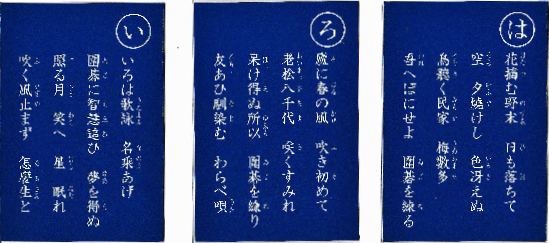 は
花摘む野末 日も落ちて
空 夕焼けし 色冴えぬ
鳥聴く民家 梅数多
吾へほにせよ 囲碁を練る
ろ
庭に春の風 吹き初めて
老松八千代 咲くすみれ
呆け得ぬ所以 囲碁を練り
友あひ馴染む わらべ唄
い
いろは歌詠 名乗あげ
囲碁に智慧這ひ 夢を得ぬ
照る月 笑へ 星 眠れ
吹く風止まず 怎麼生と